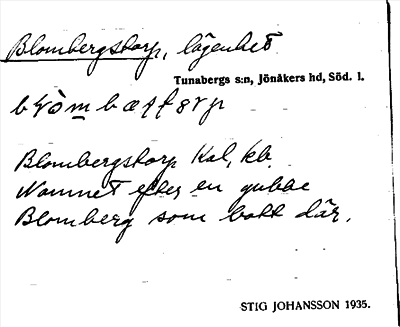 Blombergstorp, lägenhet
Tunabergs s:n, Jönåkers hd, Söd. l.
Blombergstorp Kal, kb.
Namnet efter en gubbe
Blomberg som bott där.
STIG JOHANSSON 1935.